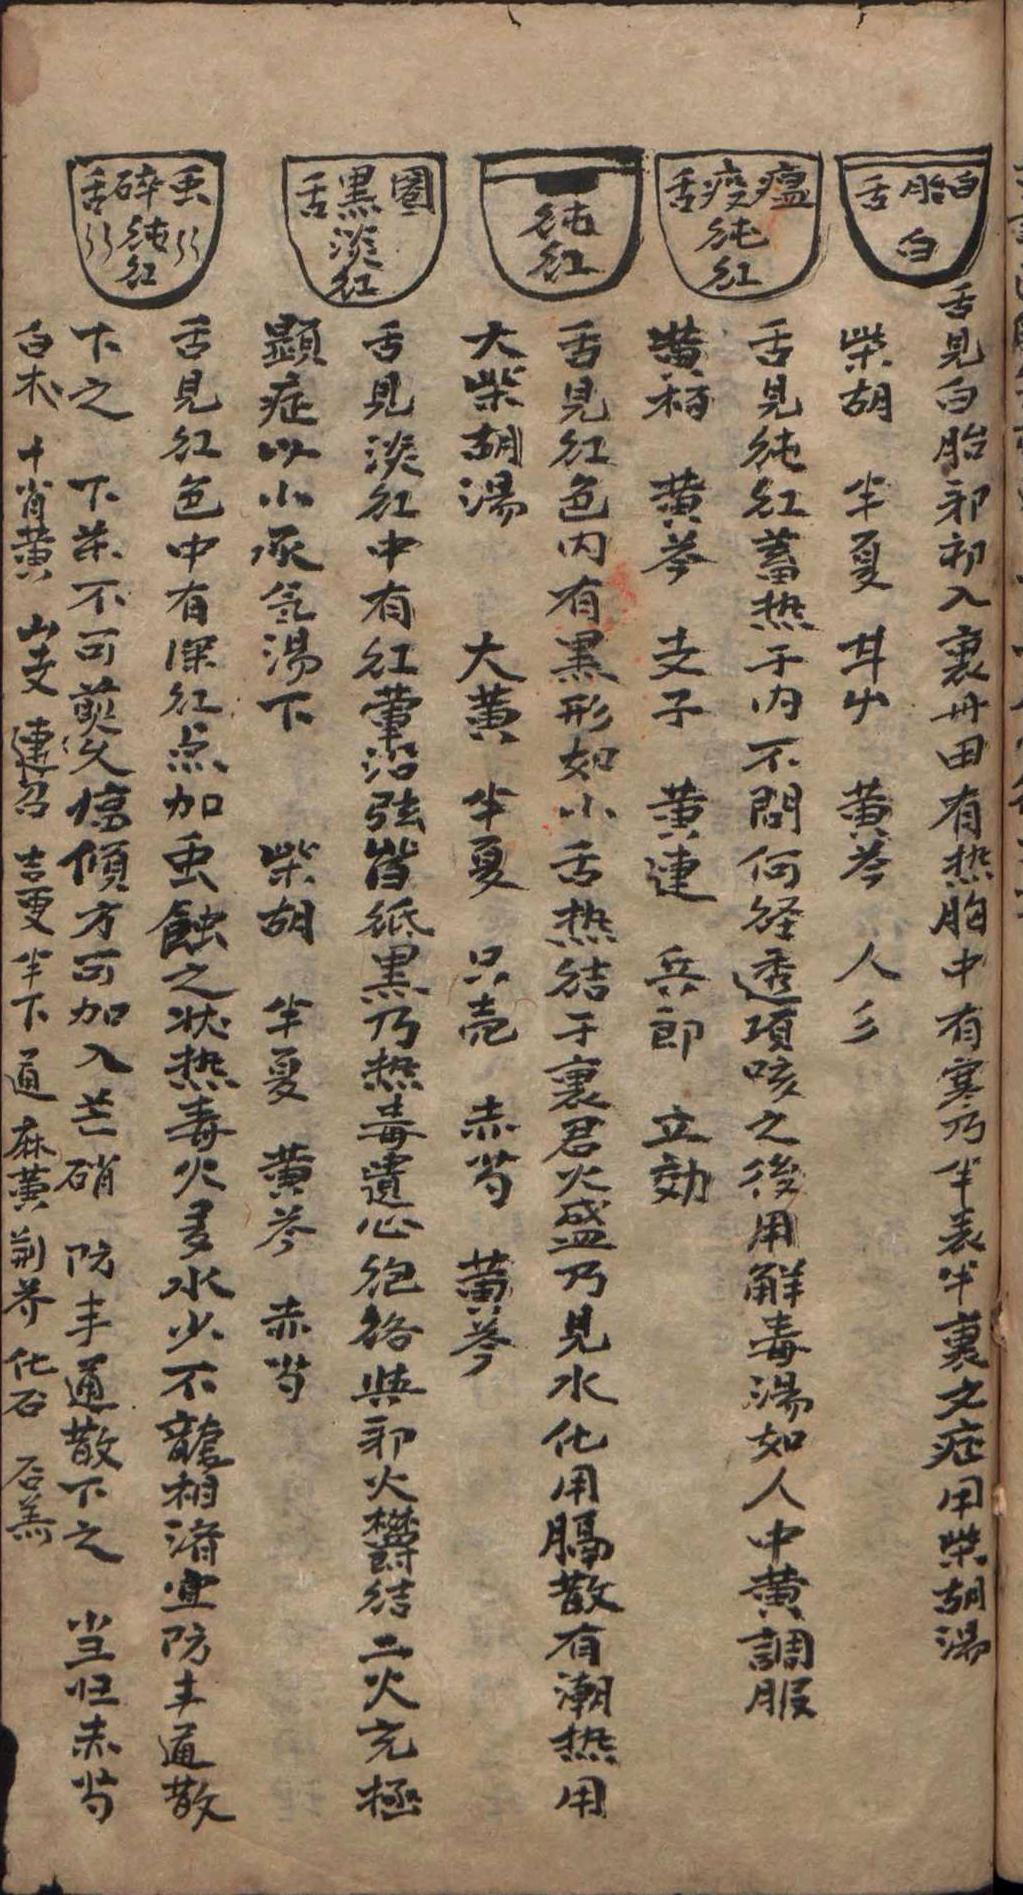 白胎舌
白
舌見白胎邪初入裏丹田有热胸中有寒乃半表半裏之症用柴胡湯
柴胡 半夏 甘屮 黄芩 人彡
瘟疫舌
純红
舌見純红蓄热于内不問何经透項咳之後用解毒湯如人中黄調服
黄栢 黄芩 支子 黄連 兵郎 立効
純红
舌見红色内有黑形如小舌热结于裏君火盛乃見水化用膈散有潮热用
大柴胡湯 大黄 半夏 只壳 赤芍 黄芩
圏黑舌
淡红
舌見淡红中有红暈沿弦皆纸黑乃热毒遺心胞络與邪火欝结二火亢極
顕症以小承氣湯下 柴胡 半夏 黄芩 赤芍
虫碎舌
純红
舌見红色中有深红点加虫蝕之状热毒火多水少不龍相済宜防丰通散
下之 下茶不可煎久傾方可加入芒硝 防丰通散下之 当归赤芍
白术 十省黄 山支 連召 吉更 半下 通 麻黄 荆芥 化石 石羔